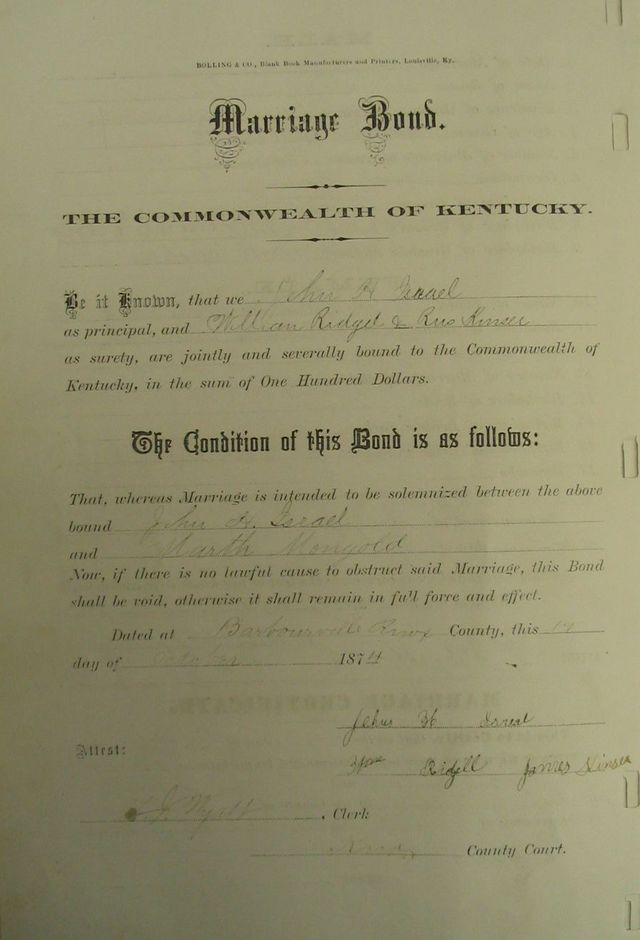 BOLLING & CO., Blank Book Manufacturers and Printers, Louisville, Ky.
Marriage Bond.
THE COMMONWEALTH OF KENTUCKY.
Be it Known, that we John H Israel
as principal, and William Ridget &
as surety, are jointly and severally bound to the Commonwealth of
Kentucky, in the sum of One Hundred Dollars.
The Condition of this Bond is as follows:
That, whereas Marriage is intended to be solemnized between the above
bound John H. Israel
and Marth Mongold
Now, if there is no lawful cause to obstruct said Marriage, this Bond
shall be void, otherwise it shall remain in full force and effect.
Dated at Barbourville Knox County, this
day of October 1874
H Isreal
Attest:
James
, Clerk
Knox
County Court.